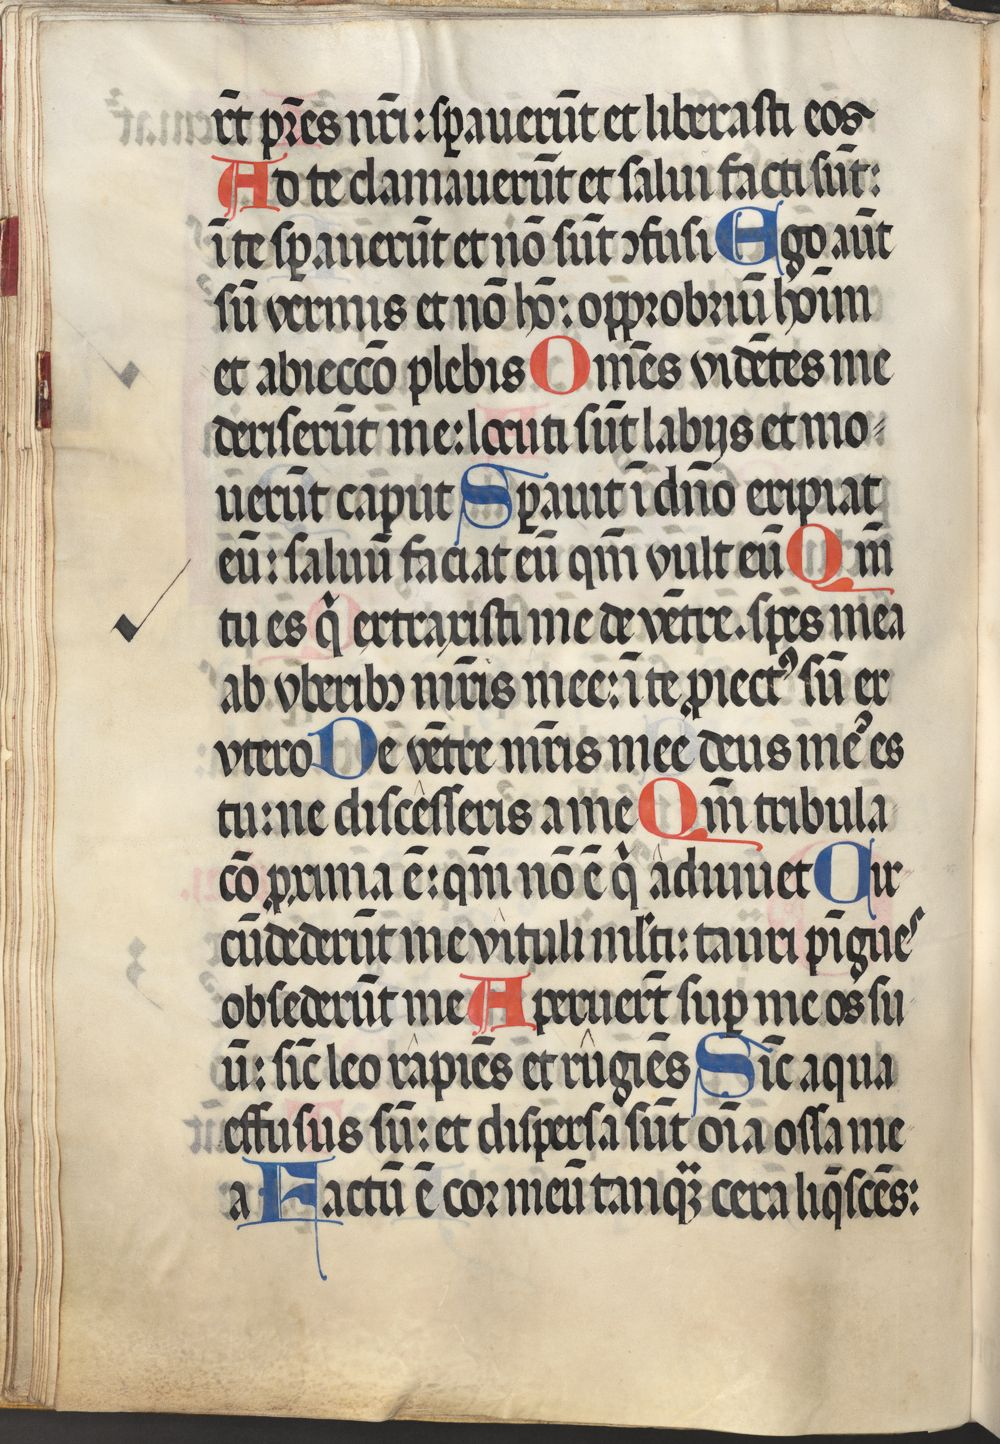 rt̄ pr̄es nr̄i: sꝑauerūt et liberasti eos
Ad te clamauerūt et salui facti sūt:
ī te sꝑauerūt et nō sūt ↄfusi Ego aūt
sū vermis et nō hō: opprobriū hoīm
et abieccō plebis Omēs vidētes me
deriserūt me: locuti sūt labijs et mo⸗
uerūt caput Sꝑauit ī dn̄o eripiat
eū: saluū faciat eū qm̄ vult eū Qm̄
tu es qͥ extraxisti me de vētre. sp̄es mea
ab vberibꝫ mr̄is mee: ī te ꝓiectꝰ sū ex
vtero De vētre mr̄is mee deus meꝰ es
tu: ne discesseris a me Qm̄ tribula
cō ꝓxima ē: qm̄ nō ē qͥ adiuuet Cir
cūdederūt me vituli ml̄ti: tauri pīgues
obsederūt me Aperuert̄ suꝑ me os su
ū: sic̄ leo rapiēs et rugiēs Sic̄ aqua
effusus sū: et dispersa sūt oīa ossa me
a Factū ē cor meū tanqᷓꝫ cera liq̄scēs: